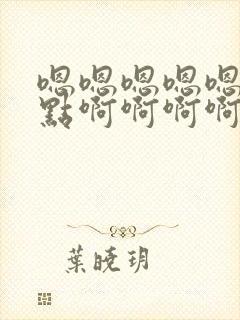 嗯嗯嗯嗯嗯
點啊啊啊啊
葉曉玥